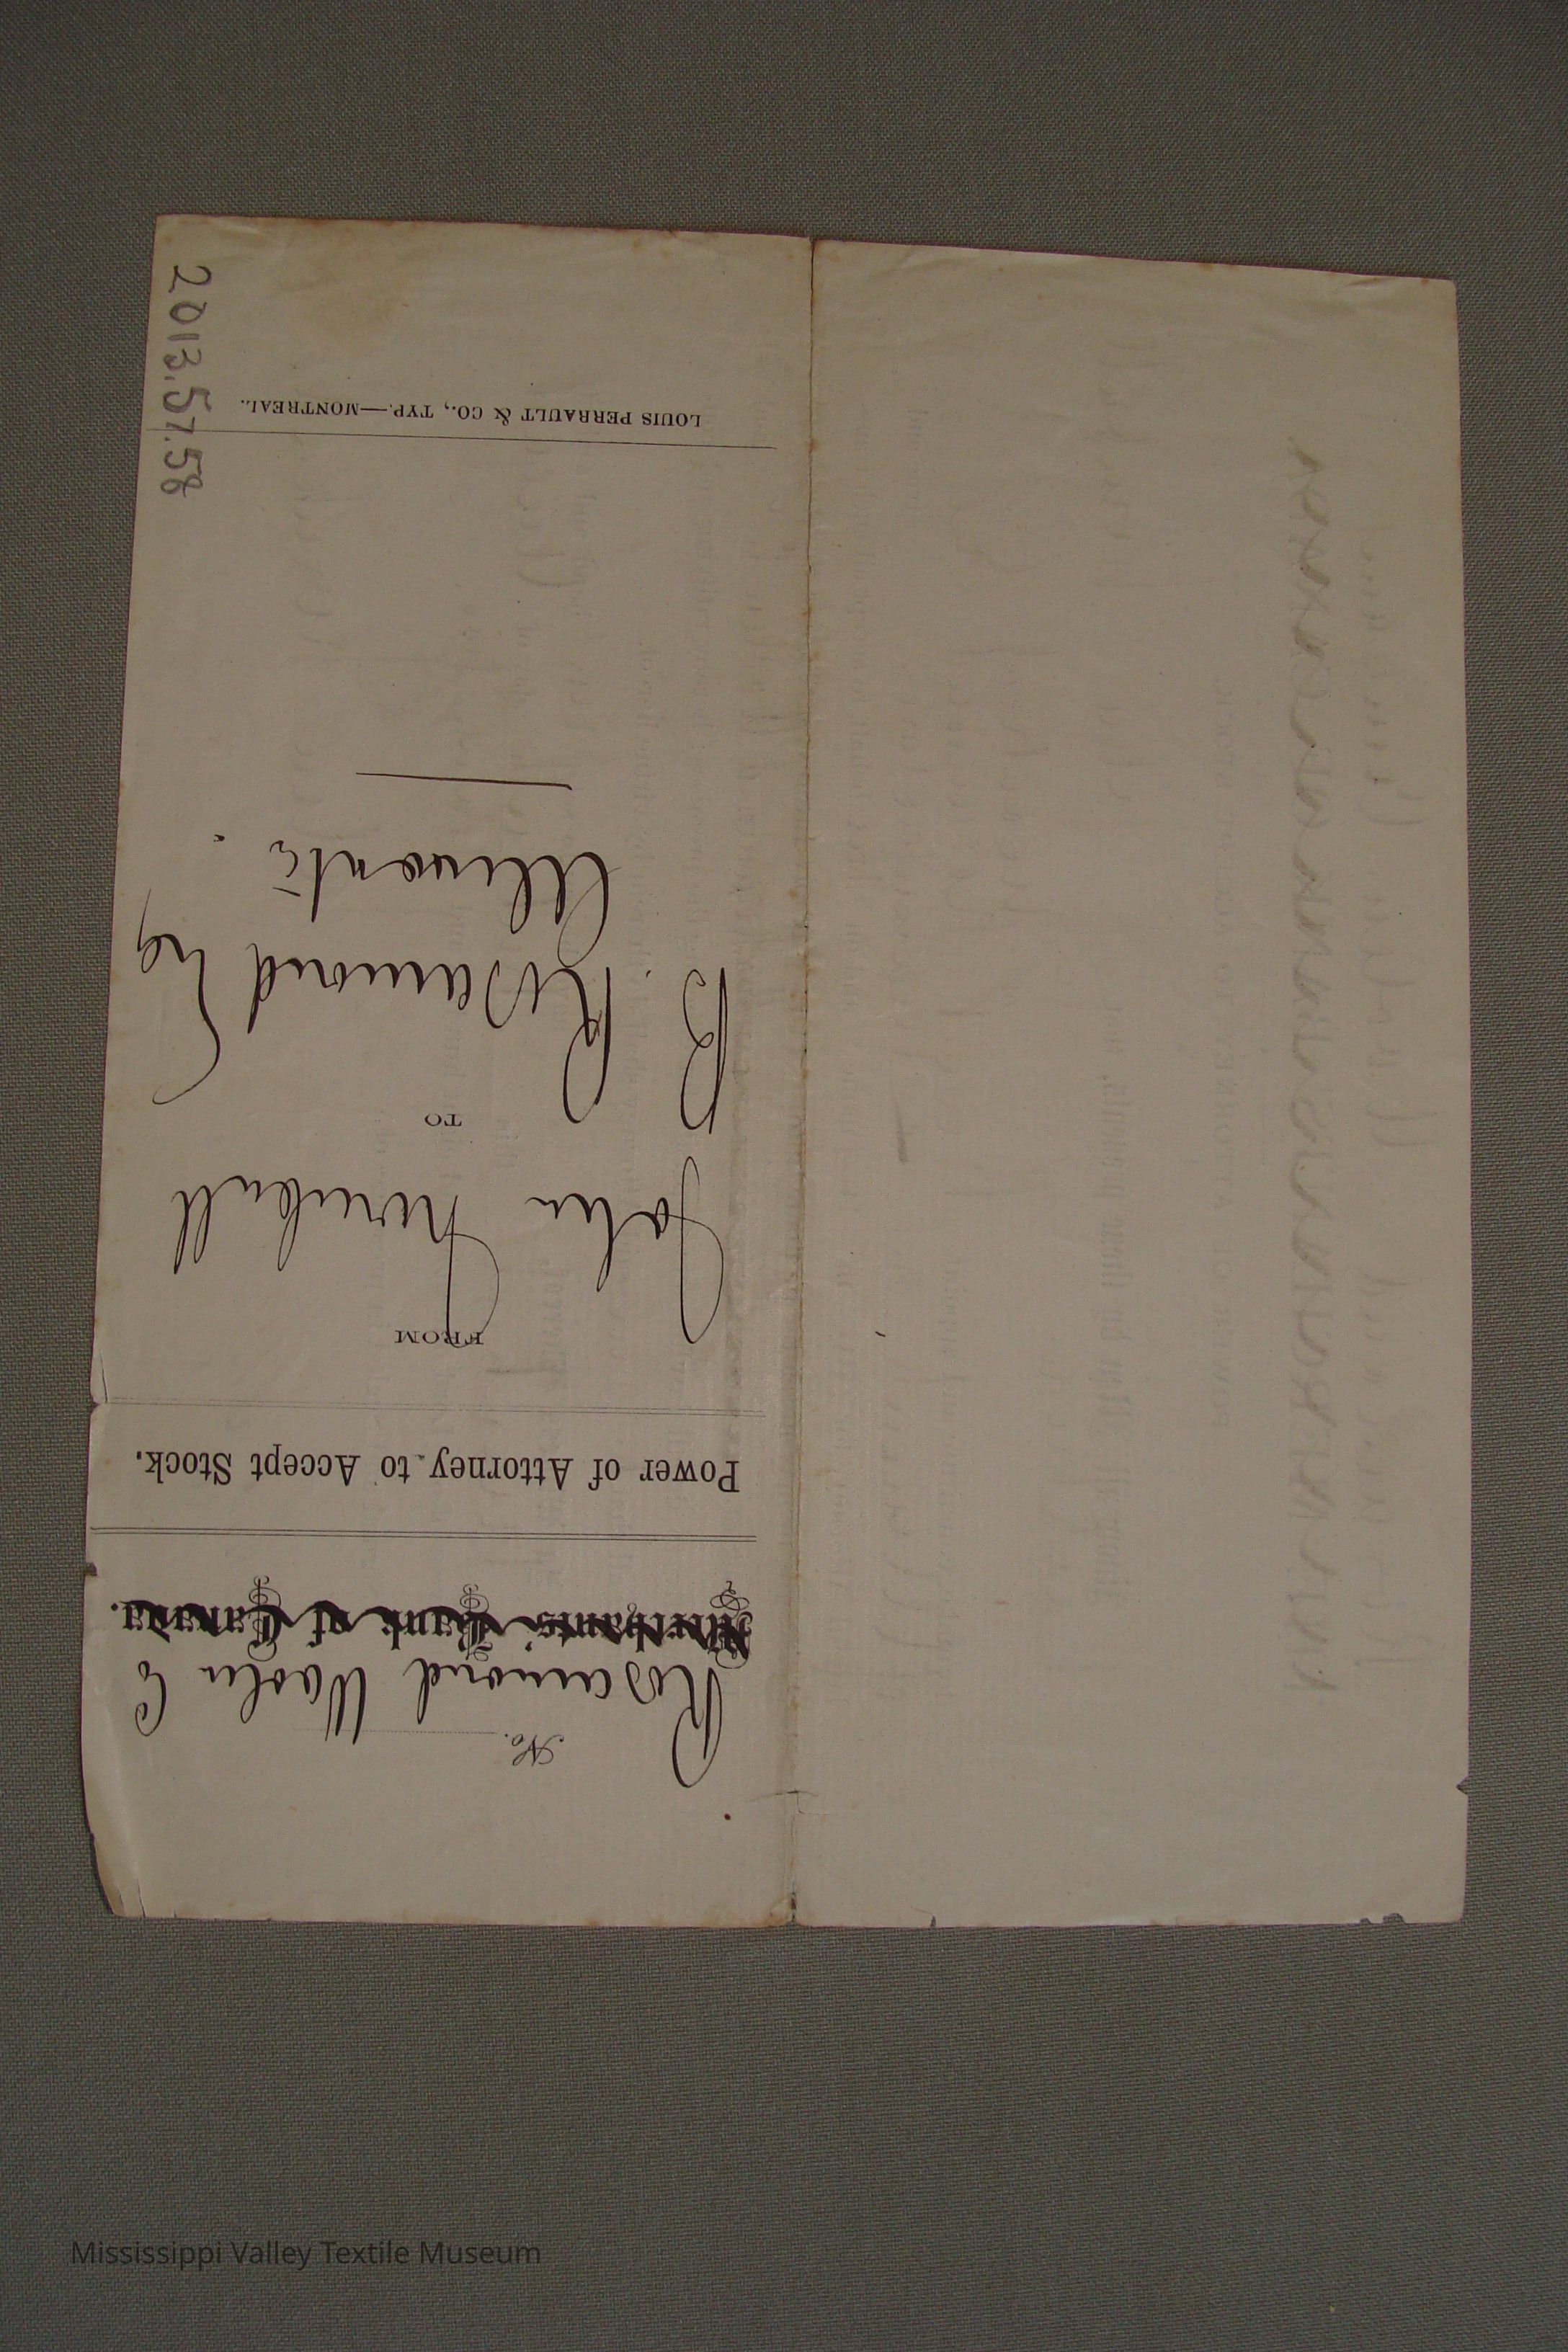 No.
Rosamond Woolen Co
Merchants' Bank of Canada.
Power of Attorney to Accept Stock.
FROM
John Turnbull
TO
B. Rosamond Esq
Almonte.
LOUIS PERRAULT & CO., TYP.—MONTREAL.
2013.57.58
Mississippi Valley Textile Museum